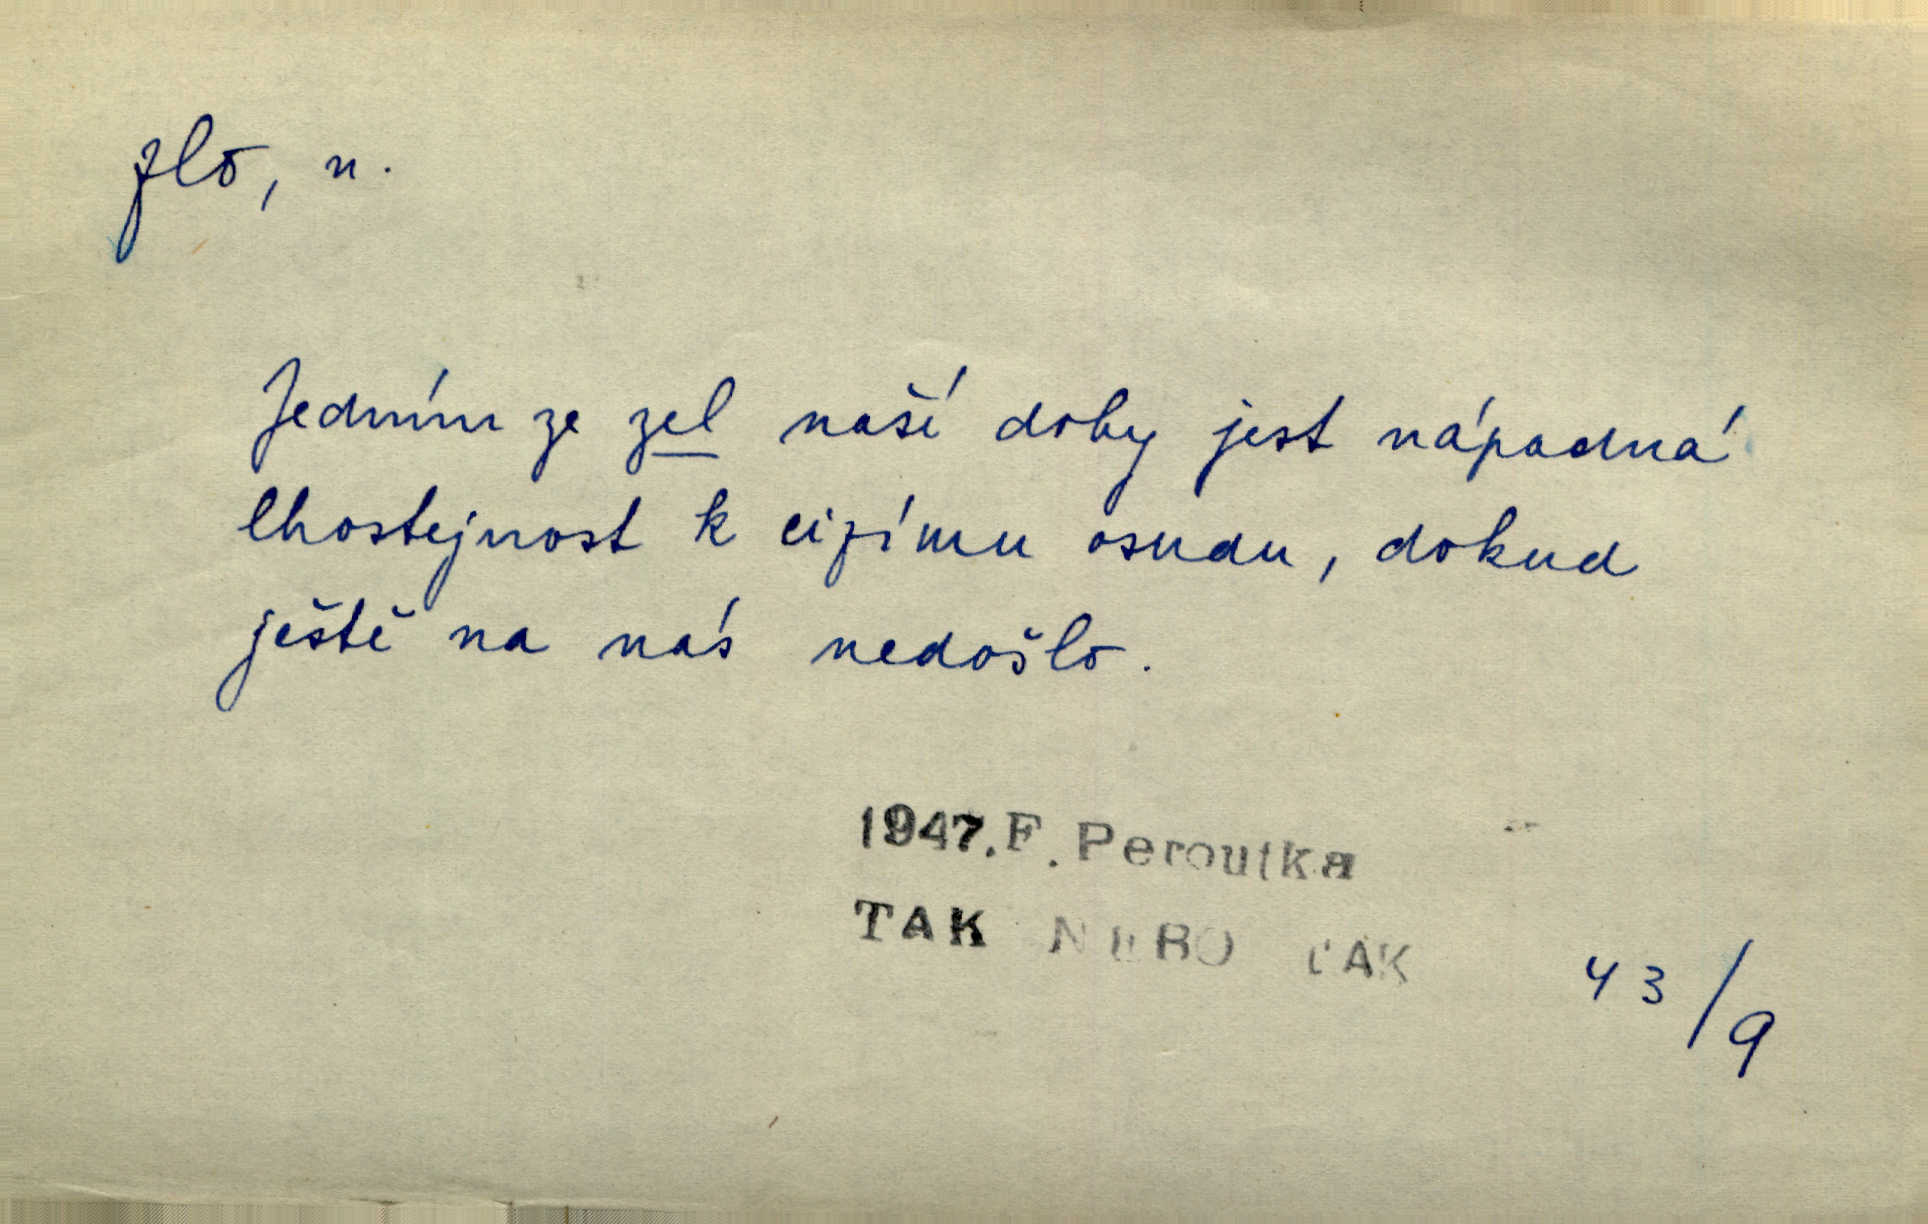 zlo, n.
Jedním ze zel naší doby jest nápadná
lhostejnost k cizímu osudu, dokud
ještě na nás nedošlo.
1947. F. Peroutka
TAK NEBO TAK
43/9